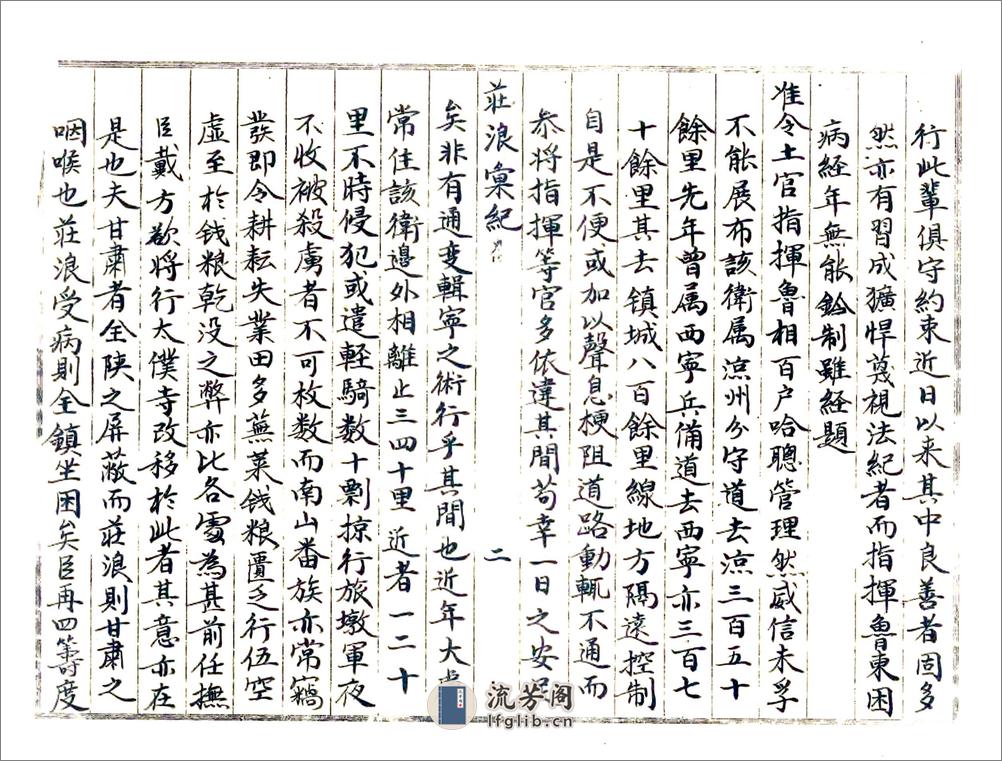 行此輩俱守約束近日以来其中良善者固多
然亦有習成獷悍蔑視法紀者而指揮魯東困
病経年無能鈐制雖経題
准令土官指揮魯相百户哈聰管理然威信未孚
不能展布該衛属涼州分守道去涼三百五十
餘里先年曾属西寧兵備道去西寧亦三百七
十餘里其去镇城八百餘里線地方隔遠控制
自是不便或加以聲息梗阻道路動輒不通而
叅将指揮等官多依違其間苟幸一日之安
莊浪彙紀
二
矣非有通变輯寧之術行乎其間也近年大
常住該衛邊外相離止三四十里近者一二十
里不時侵犯或遣軽騎数十剽掠行旅墩軍夜
不收被殺虜者不可枚数而南山畨族亦常竊
發即令耕耘失業田多蕪莱钱粮匱乏行伍空
虚至於钱粮乾没之弊亦比各處為甚前任撫
臣戴方欲将行太僕寺改移於此者其意亦在
是也夫甘肅者全陕之屏蔽而莊浪則甘肅之
咽喉也莊浪受病則全鎮坐困矣臣再四籌度
流芳阁
lfglib.cn